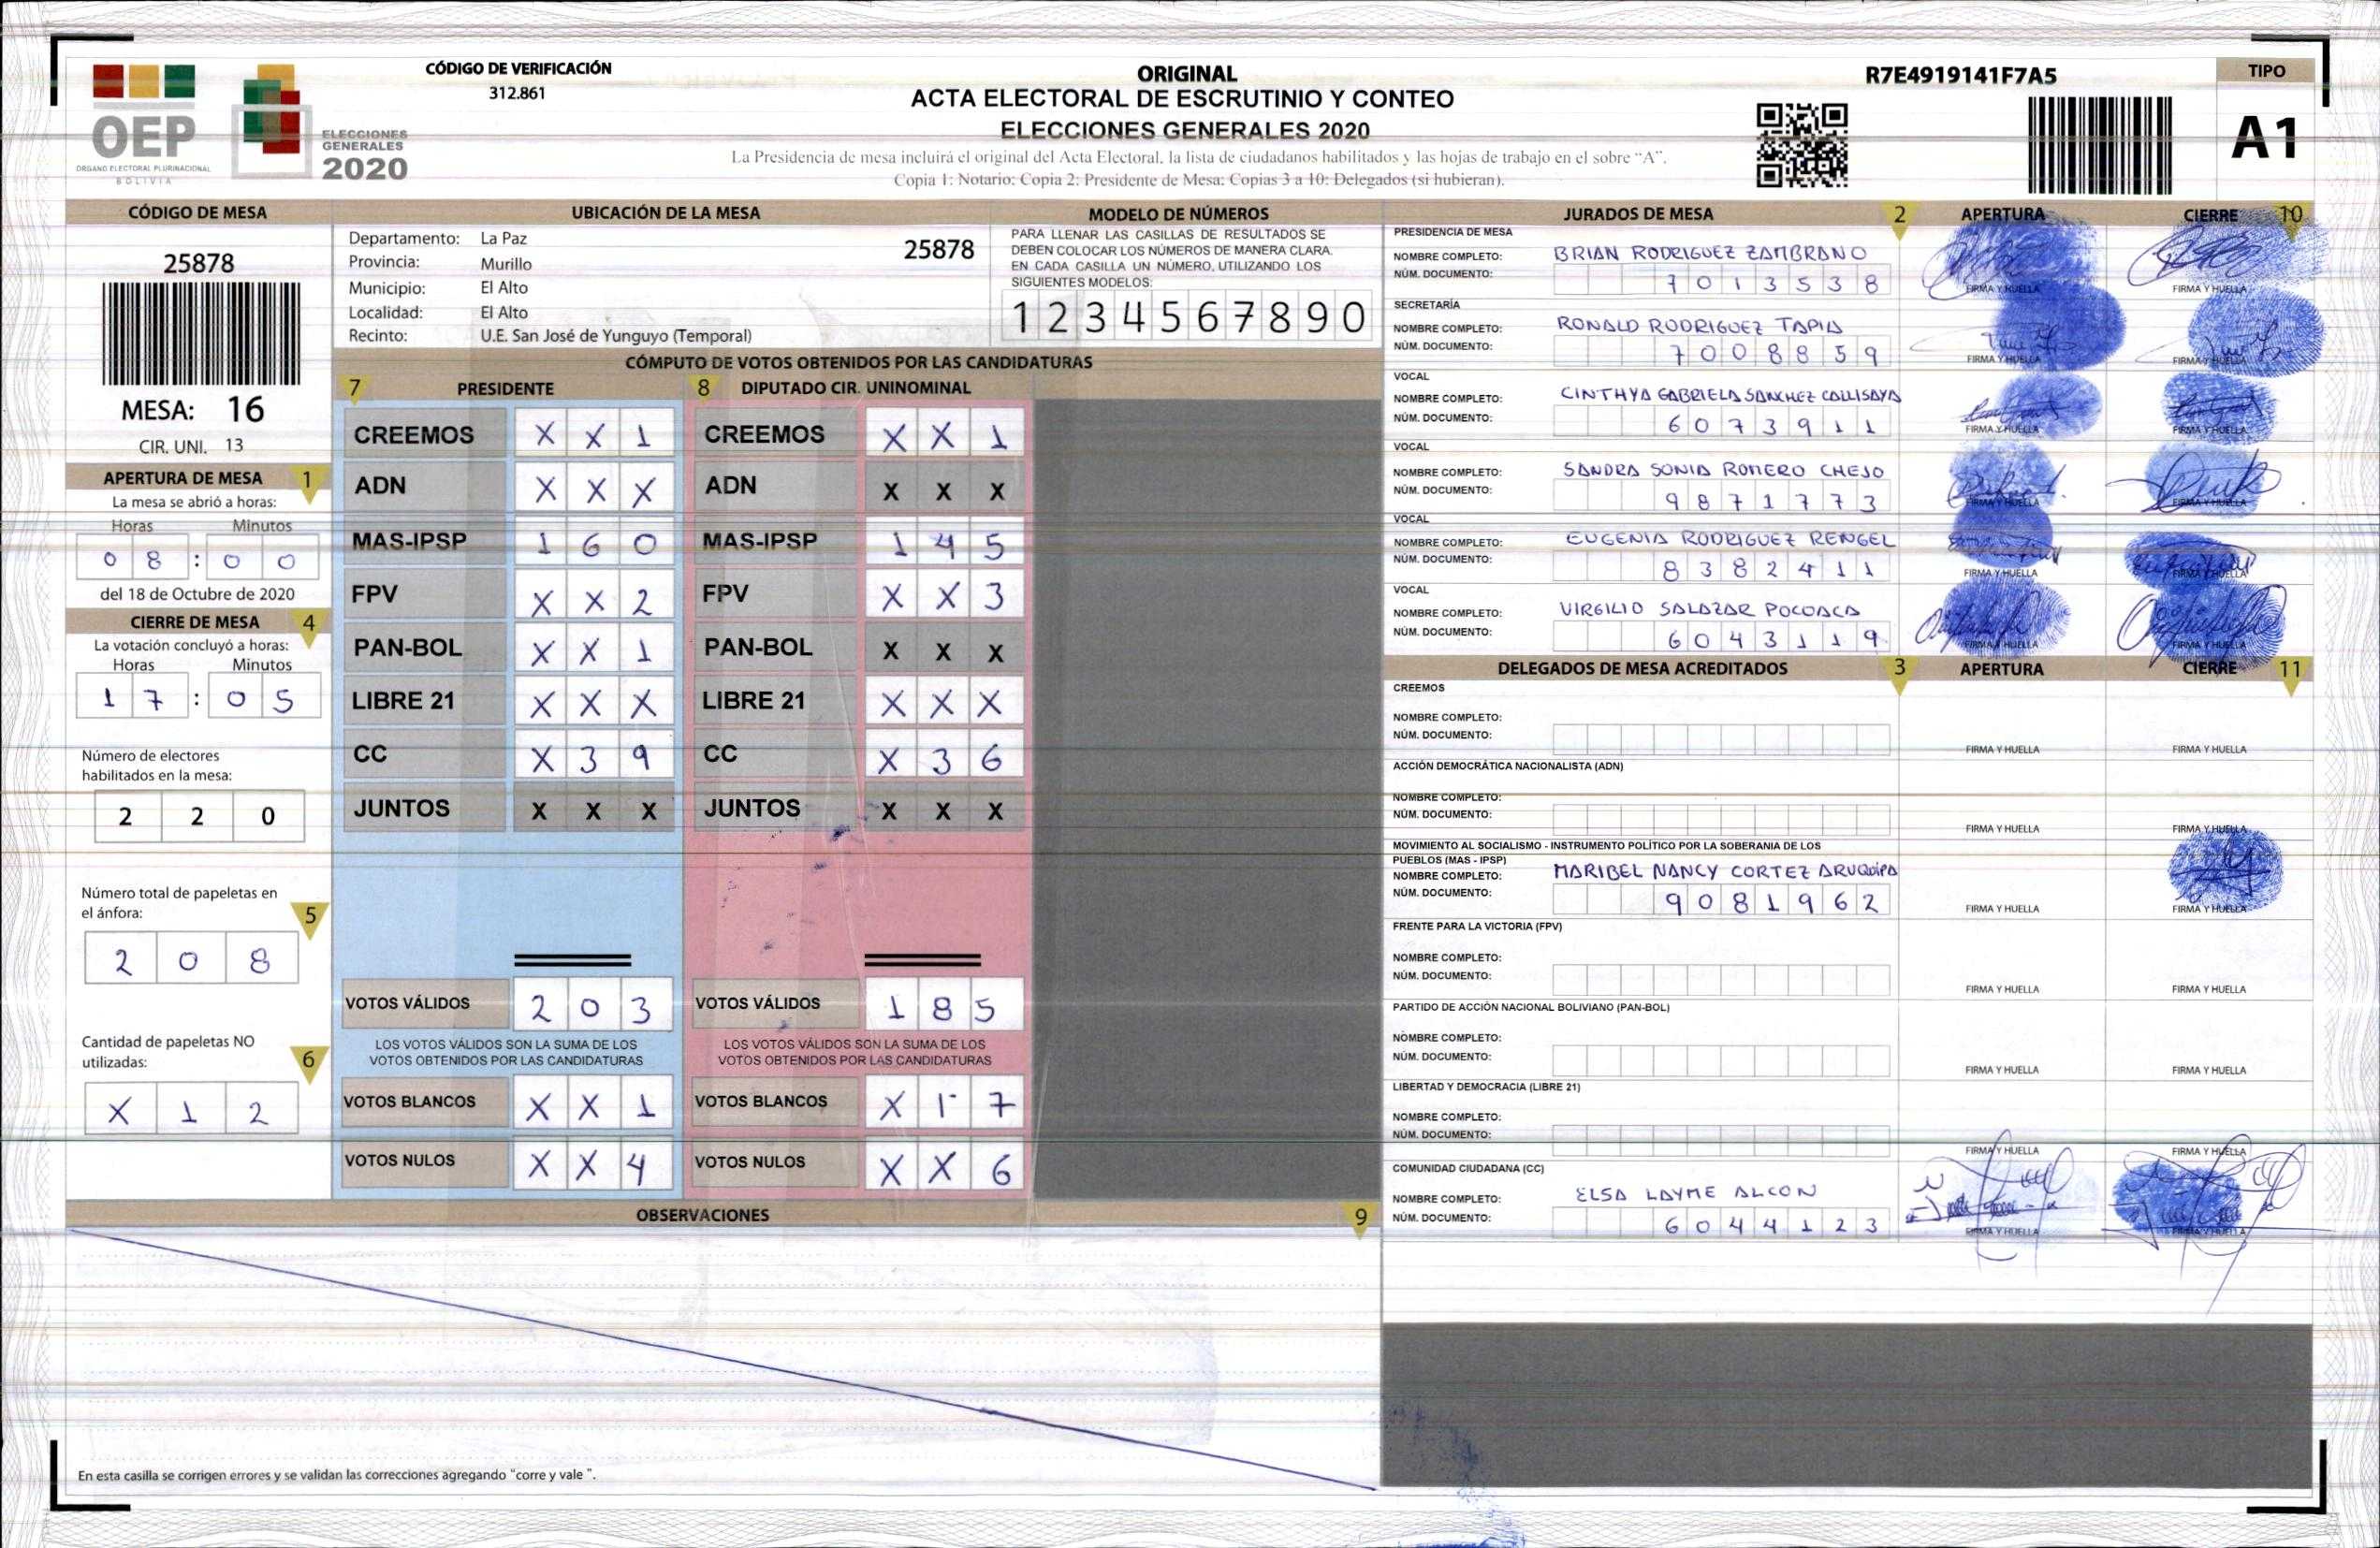 OEP
ORGANO ELECTORAL PLURINACIONAL
BOLIVIA
ELECCIONES
GENERALES
2020
CÓDIGO DE VERIFICACIÓN
312.861
ORIGINAL
ACTA ELECTORAL DE ESCRUTINIO Y CONTEO
ELECCIONES GENERALES 2020
La Presidencia de mesa incluirá el original del Acta Electoral, la lista de ciudadanos habilitados y las hojas de trabajo en el sobre "A".
Copia 1: Notario; Copia 2: Presidente de Mesa; Copias 3 a 10: Delegados (si hubieran).
R7E4919141F7A5
TIPO
A1
CÓDIGO DE MESA
25878
MESA: 16
CIR. UNI. 13
APERTURA DE MESA 1
La mesa se abrió a horas:
Horas Minutos
0 8 : 0 0
del 18 de Octubre de 2020
CIERRE DE MESA 4
La votación concluyó a horas:
Horas Minutos
1 7 : 0 5
Número de electores
habilitados en la mesa:
2 2 0
Número total de papeletas en
el ánfora: 5
2 0 8
Cantidad de papeletas NO
utilizadas: 6
X 1 2
UBICACIÓN DE LA MESA
Departamento: La Paz 25878
Provincia: Murillo
Municipio: El Alto
Localidad: El Alto
Recinto: U.E. San José de Yunguyo (Temporal)
MODELO DE NÚMEROS
PARA LLENAR LAS CASILLAS DE RESULTADOS SE
DEBEN COLOCAR LOS NÚMEROS DE MANERA CLARA.
EN CADA CASILLA UN NÚMERO, UTILIZANDO LOS
SIGUIENTES MODELOS:
1 2 3 4 5 6 7 8 9 0
CÓMPUTO DE VOTOS OBTENIDOS POR LAS CANDIDATURAS
7 PRESIDENTE 8 DIPUTADO CIR. UNINOMINAL
CREEMOS X X 1 CREEMOS X X 1
ADN X X X ADN X X X
MAS-IPSP 1 6 0 MAS-IPSP 1 4 5
FPV X X 2 FPV X X 3
PAN-BOL X X 1 PAN-BOL X X X
LIBRE 21 X X X LIBRE 21 X X X
CC X 3 9 CC X 3 6
JUNTOS X X X JUNTOS X X X
VOTOS VÁLIDOS 2 0 3 VOTOS VÁLIDOS 1 8 5
LOS VOTOS VÁLIDOS SON LA SUMA DE LOS LOS VOTOS VÁLIDOS SON LA SUMA DE LOS
VOTOS OBTENIDOS POR LAS CANDIDATURAS VOTOS OBTENIDOS POR LAS CANDIDATURAS
VOTOS BLANCOS X X 1 VOTOS BLANCOS X 1 7
VOTOS NULOS X X 4 VOTOS NULOS X X 6
OBSERVACIONES 9
En esta casilla se corrigen errores y se validan las correcciones agregando "corre y vale ".
JURADOS DE MESA 2 APERTURA CIERRE 10
PRESIDENCIA DE MESA
NOMBRE COMPLETO: BRIAN RODRIGUEZ ZAMBRANO
NÚM. DOCUMENTO: 7 0 1 3 5 3 8
FIRMA Y HUELLA FIRMA Y HUELLA
SECRETARÍA
NOMBRE COMPLETO: RONALD RODRIGUEZ TAPIA
NÚM. DOCUMENTO: 7 0 0 8 8 5 9
FIRMA Y HUELLA FIRMA Y HUELLA
VOCAL
NOMBRE COMPLETO: CINTHYA GABRIELA SANCHEZ CALLISAYA
NÚM. DOCUMENTO: 6 0 7 3 9 1 1
FIRMA Y HUELLA FIRMA Y HUELLA
VOCAL
NOMBRE COMPLETO: SANDRA SONIA ROMERO CHEJO
NÚM. DOCUMENTO: 9 8 7 1 7 7 3
FIRMA Y HUELLA FIRMA Y HUELLA
VOCAL
NOMBRE COMPLETO: EUGENIA RODRIGUEZ RENGEL
NÚM. DOCUMENTO: 8 3 8 2 4 1 1
FIRMA Y HUELLA FIRMA Y HUELLA
VOCAL
NOMBRE COMPLETO: VIRGILIO SALAZAR POCOACA
NÚM. DOCUMENTO: 6 0 4 3 1 1 9
FIRMA Y HUELLA FIRMA Y HUELLA
DELEGADOS DE MESA ACREDITADOS 3 APERTURA CIERRE 11
CREEMOS
NOMBRE COMPLETO:
NÚM. DOCUMENTO:
FIRMA Y HUELLA FIRMA Y HUELLA
ACCIÓN DEMOCRÁTICA NACIONALISTA (ADN)
NOMBRE COMPLETO:
NÚM. DOCUMENTO:
FIRMA Y HUELLA FIRMA Y HUELLA
MOVIMIENTO AL SOCIALISMO - INSTRUMENTO POLÍTICO POR LA SOBERANIA DE LOS
PUEBLOS (MAS - IPSP)
NOMBRE COMPLETO: MARIBEL NANCY CORTEZ ARUQUIPA
NÚM. DOCUMENTO: 9 0 8 1 9 6 2
FIRMA Y HUELLA FIRMA Y HUELLA
FRENTE PARA LA VICTORIA (FPV)
NOMBRE COMPLETO:
NÚM. DOCUMENTO:
FIRMA Y HUELLA FIRMA Y HUELLA
PARTIDO DE ACCIÓN NACIONAL BOLIVIANO (PAN-BOL)
NOMBRE COMPLETO:
NÚM. DOCUMENTO:
FIRMA Y HUELLA FIRMA Y HUELLA
LIBERTAD Y DEMOCRACIA (LIBRE 21)
NOMBRE COMPLETO:
NÚM. DOCUMENTO:
FIRMA Y HUELLA FIRMA Y HUELLA
COMUNIDAD CIUDADANA (CC)
NOMBRE COMPLETO: ELSA LAYME ALCON
NÚM. DOCUMENTO: 6 0 4 4 1 2 3
FIRMA Y HUELLA FIRMA Y HUELLA